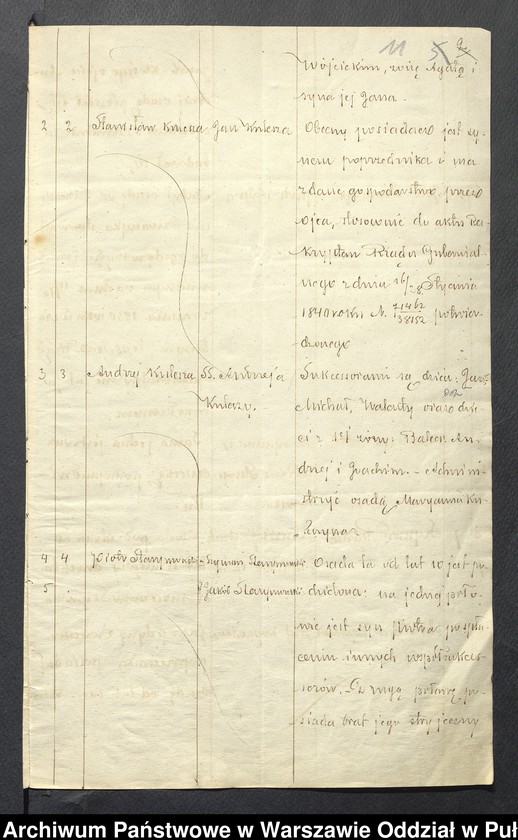 11 5
Wójcickim, żonę Agatę i
syna jej Jana.
2 2 Stanisław Kulesza Jan Kulesza Obecny posiadacz jest sy-
nem poprzednika i ma
zdane gospodarstwo przez
ojca, stosownie do aktu Re-
skryptem Rządu Gubernial-
nego z dnia 16/ Stycznia
1840 roku N. 71462/38152 potwier-
dzonego
3 3 Andrzej Kulesza SS. Andrzeja Sukcessorami są dzieci: Jan,
Kuleszy. Michał, Walenty oraz dzie-
ci z 1éj żony: An-
drzej i Joachim. - Admini-
struje osadą Maryanna Ku-
leszyna
4 4 Piotr Szymon Osada ta od lat 10 jest po-
5 Jakób dzielona: na jednej poło-
wie jest syn Piotra po spła-
ceniu innych współsukces-
sorów. Drugą połowę po-
siada brat jego stryjeczny
Archiwum Państwowe w Warszawie Oddział w Puł